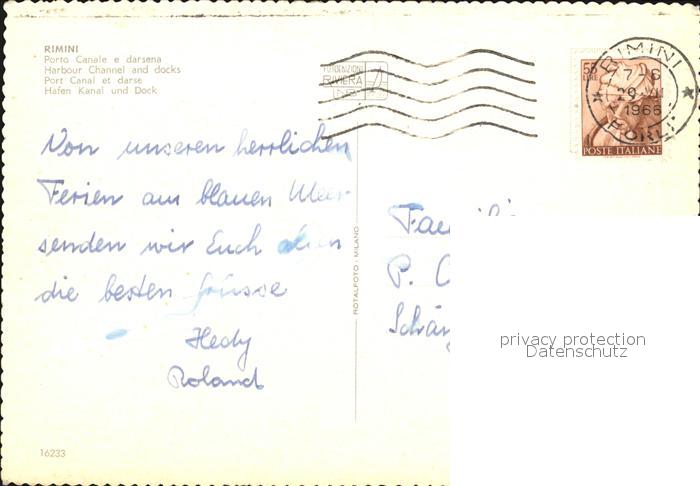 RIMINI
Porto Canale e darsena
Harbour Channel and docks
Port Canal et darse
Hafen Kanal und Dock
FOTOEDIZIONI
RIVIERA
RIMINI
17-16
29 VII
1966
FORLI
50
LIRE
POSTE ITALIANE
Von unseren herrlichen
Ferien am blauen Meer
senden wir Euch allen
die besten Grüsse
Hedy
Roland
ROTALFOTO - MILANO
P. C
privacy protection
Datenschutz
16233